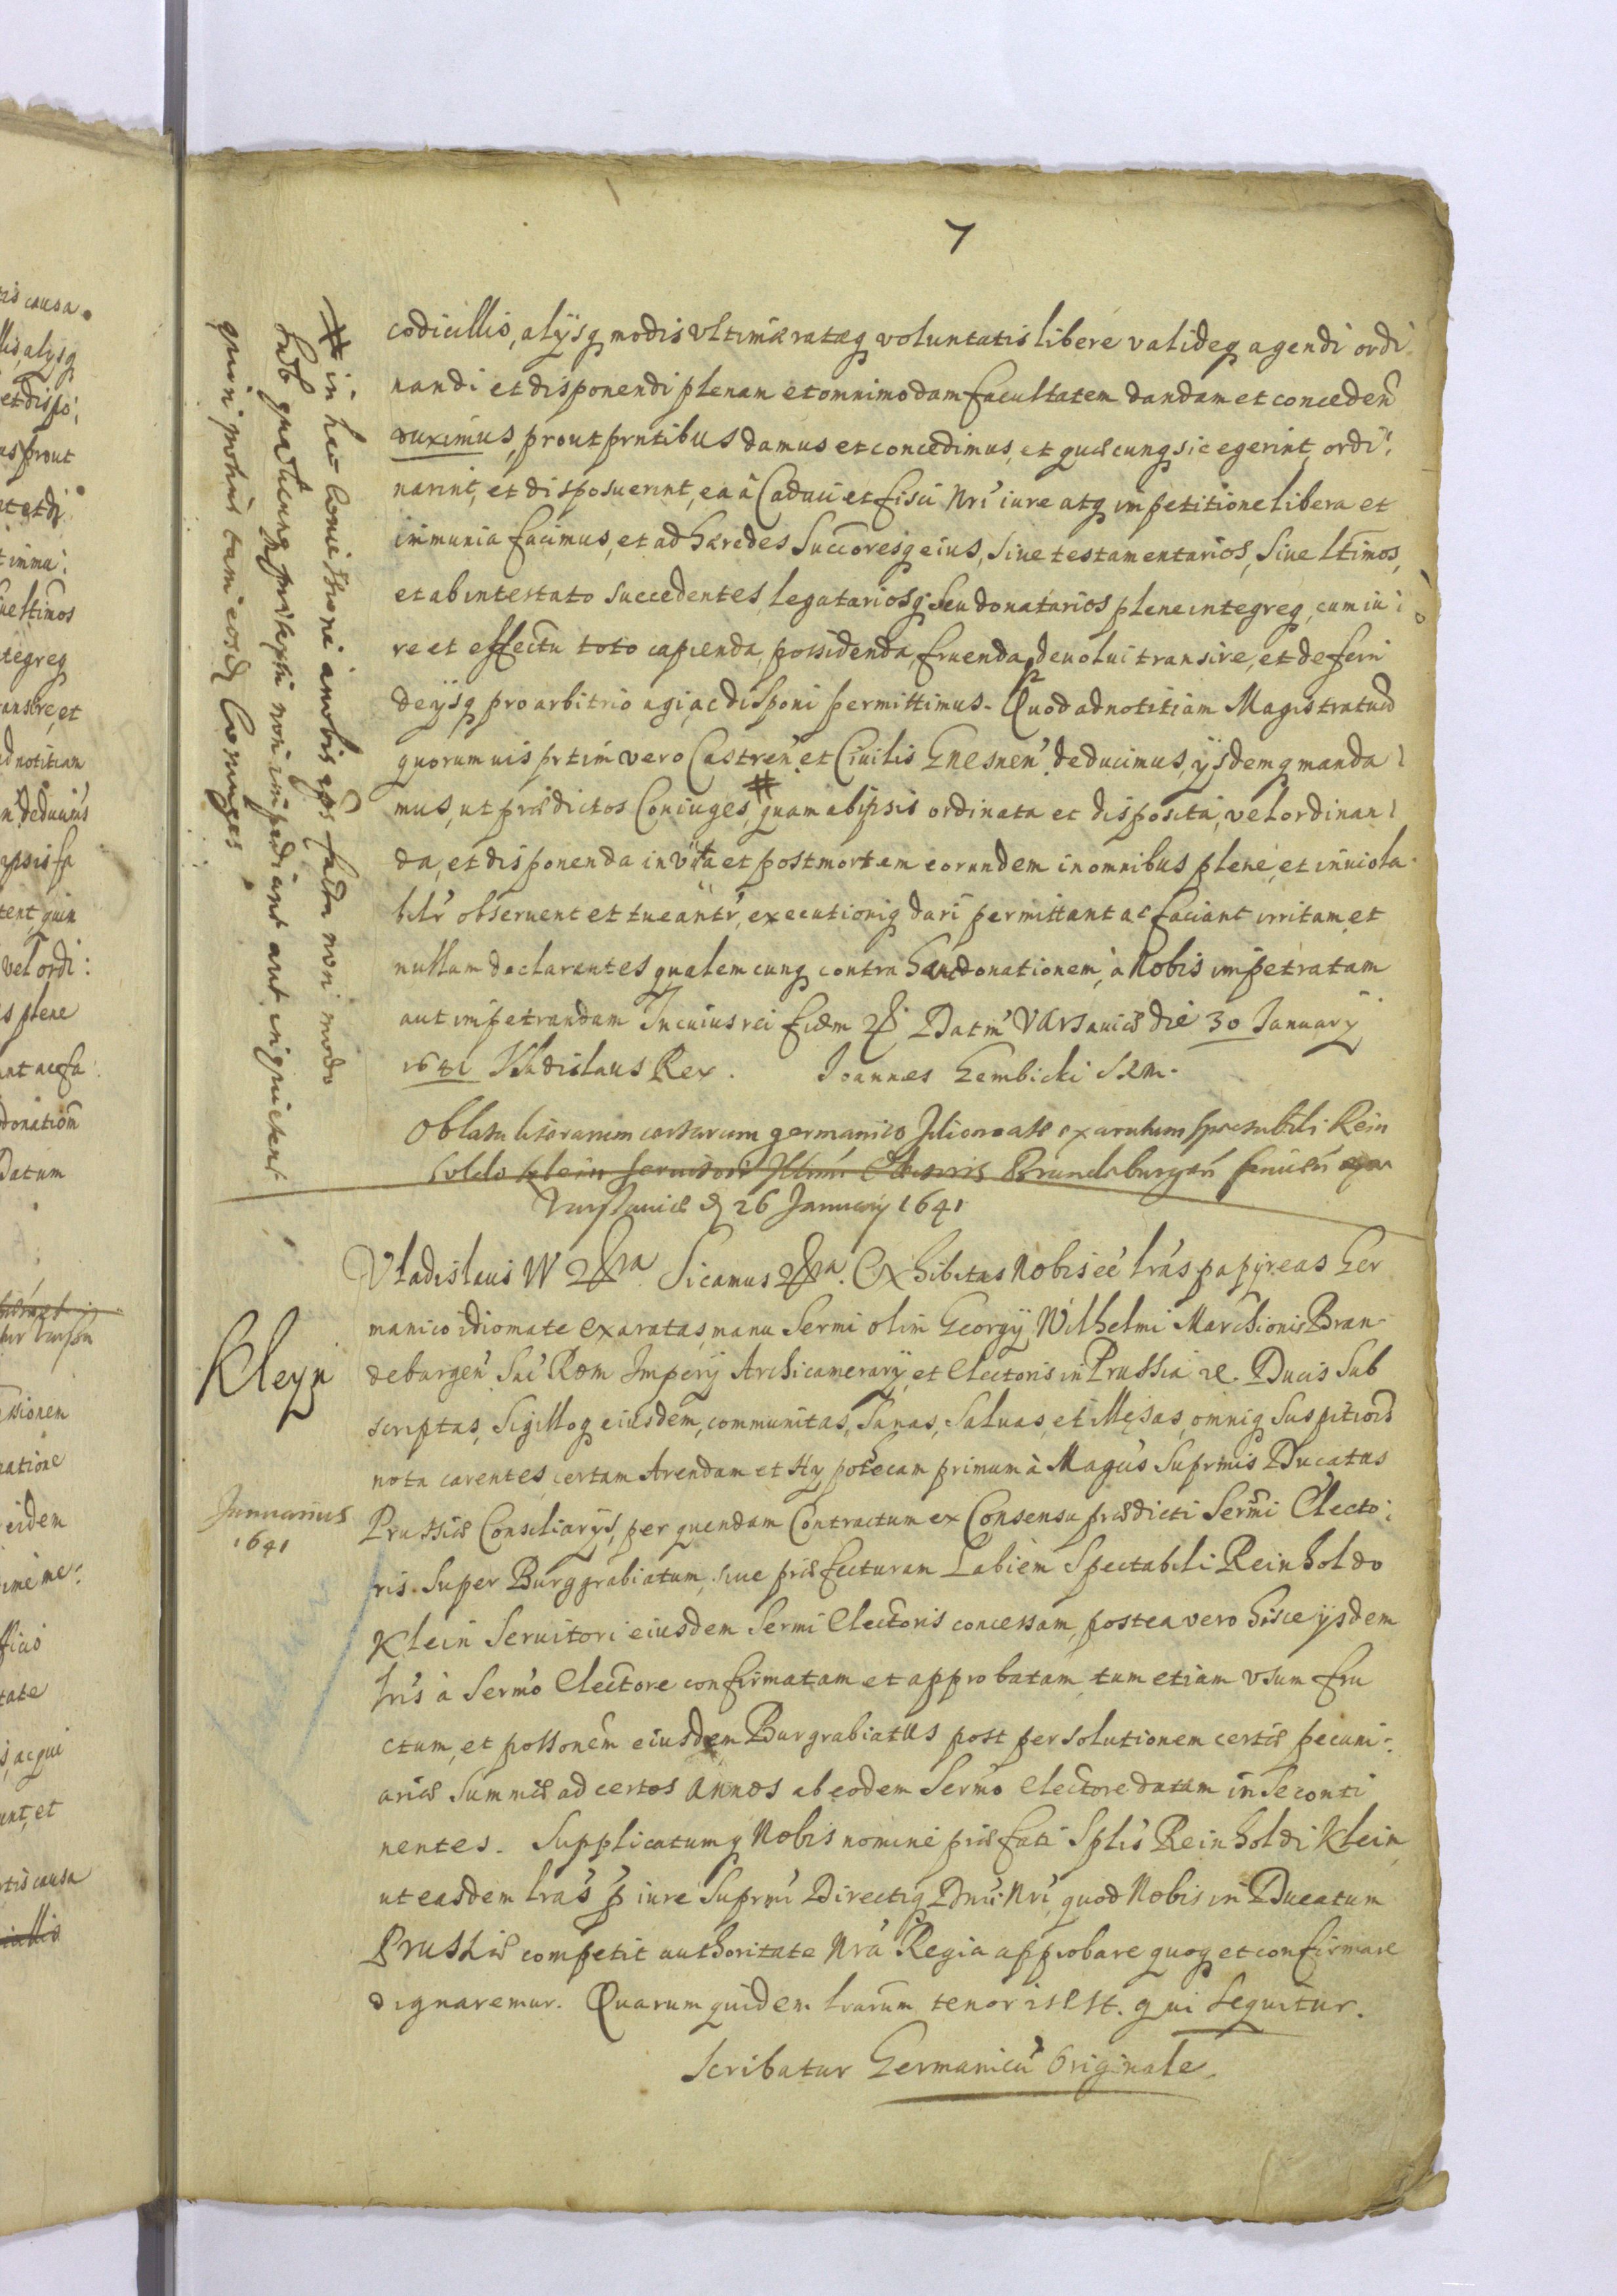 7
codicillis, alijsq modis vltimæ ratæq voluntatis libere valideq agendi ordi
nandi et disponendi plenam et omnimodam facultatem dandam et conceden̄
duximus, prout prntibus damus et concedimus, et quæcunq sic egerint, ordi
narint, et disposuerint, ea à Caduci et fisci Nri iure atq impetitione libera et
immunia facimus, et ad hæredes Succoresq eius, siue testamentarios, siue ltimos,
et ab intestato succedentes, legatariosq seu donatarios plene integreq, cum iu
re et effectu toto capienda, possidenda, fruenda, deuolui transire, et deferri
deijsq pro arbitrio agi, ac disponi permittimus. Quod ad notitiam Magistratuū
quorumuis prtim vero Castren̄ et Ciuilis Gnesnen̄ deducimus, ijsdemq manda
mus, ut prædictos Coniuges, # quam ab ipsis ordinata et disposita, vel ordinan
da, et disponenda in vita et post mortem eorundem in omnibus plene, et inuiola
bilr obseruent et tueantr, executioniq dari permittant ac faciant irritam, et
nullam declarantes qualemcunq contra hanc donationem, à Nobis impetratam
aut impetrandam In cuius rei fidem Datm Varsauiæ die 30 January
1641 Vladislaus Rex. Joannes Gembicki SRM.
# in hac bonae à nobis facta non modo
sub quocunq prætextu non impediant aut inquietent
quin potius tam eosd Coniuges
Oblata literarum certarum germanico Idiomate exaratum spectabili Rein
holdo Klein seruitori Electoris Brandeburgen̄
Varsauiæ d 26 January 1641
Vladislaus IV Sicamus Exhibitas Nobis eē lrās papyreas Ger
manico idiomate exaratas, manu Sermi olim Georgij Wilhelmi Marchionis Bran
deburgen̄ Sac Rom Imperij Archicamerarij, et Electoris in Prussia Ducis Sub
scriptas, Sigilloq eiusdem, communitas, Sanas, Saluas, et illęsas, omniq suspitiois
nota carentes, certam Arendam et Hypothecam primum à Magcis Suprmis Ducatus
Prussiæ Consiliarijs, per quendam Contractum ex Consensu prædicti Sermi Electo
ris Super Burggrabiatum, siue præfecturam Labiem Spectabili Reinholdo
Klein Seruitori eiusdem Sermi Electoris concessam, postea vero hisce ijsdem
lris à Sermo Electore confirmatam et approbatam, tum etiam vsum fru
ctum, et possonem eiusdem Burgrabiatus post persolutionem certæ pecuni
ariæ Summæ ad certos annos ab eodem Sermo Electore datam in se conti
nentes. Supplicatumq Nobis nomine præfati Splis Reinholdi Klein
ut easdem lras p iure Suprmi Directiq Dnii Nri, quod Nobis in Ducatum
Prussiæ competit authoritate Nra Regia approbare quoq et confirmare
dignaremur. Quarum quidem lrarum tenor is est. qui sequitur.
Scribatur Germanicū Originale.
Kleyn
Januarius
1641